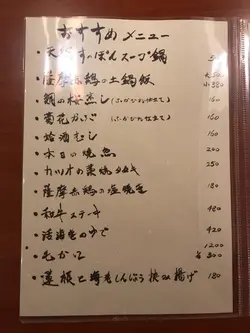 おすすめメニュー
・天然すっぽんスープ鍋
・薩摩赤鶏の土鍋飯 大500 小380
・鯛の桜蒸し(ふかひれ仕立て) 160
・菊花かぶら(ふかひれ仕立て) 160
・酒むし 160
・本日の焼魚 200
・カツオの藁焼タタキ 250
・薩摩赤鶏の塩焼き 180
・和牛ステーキ 480
・活海老のゆで 420
・毛がに 1200 半800
・蓮根と海老しんじょう挟み揚げ 180